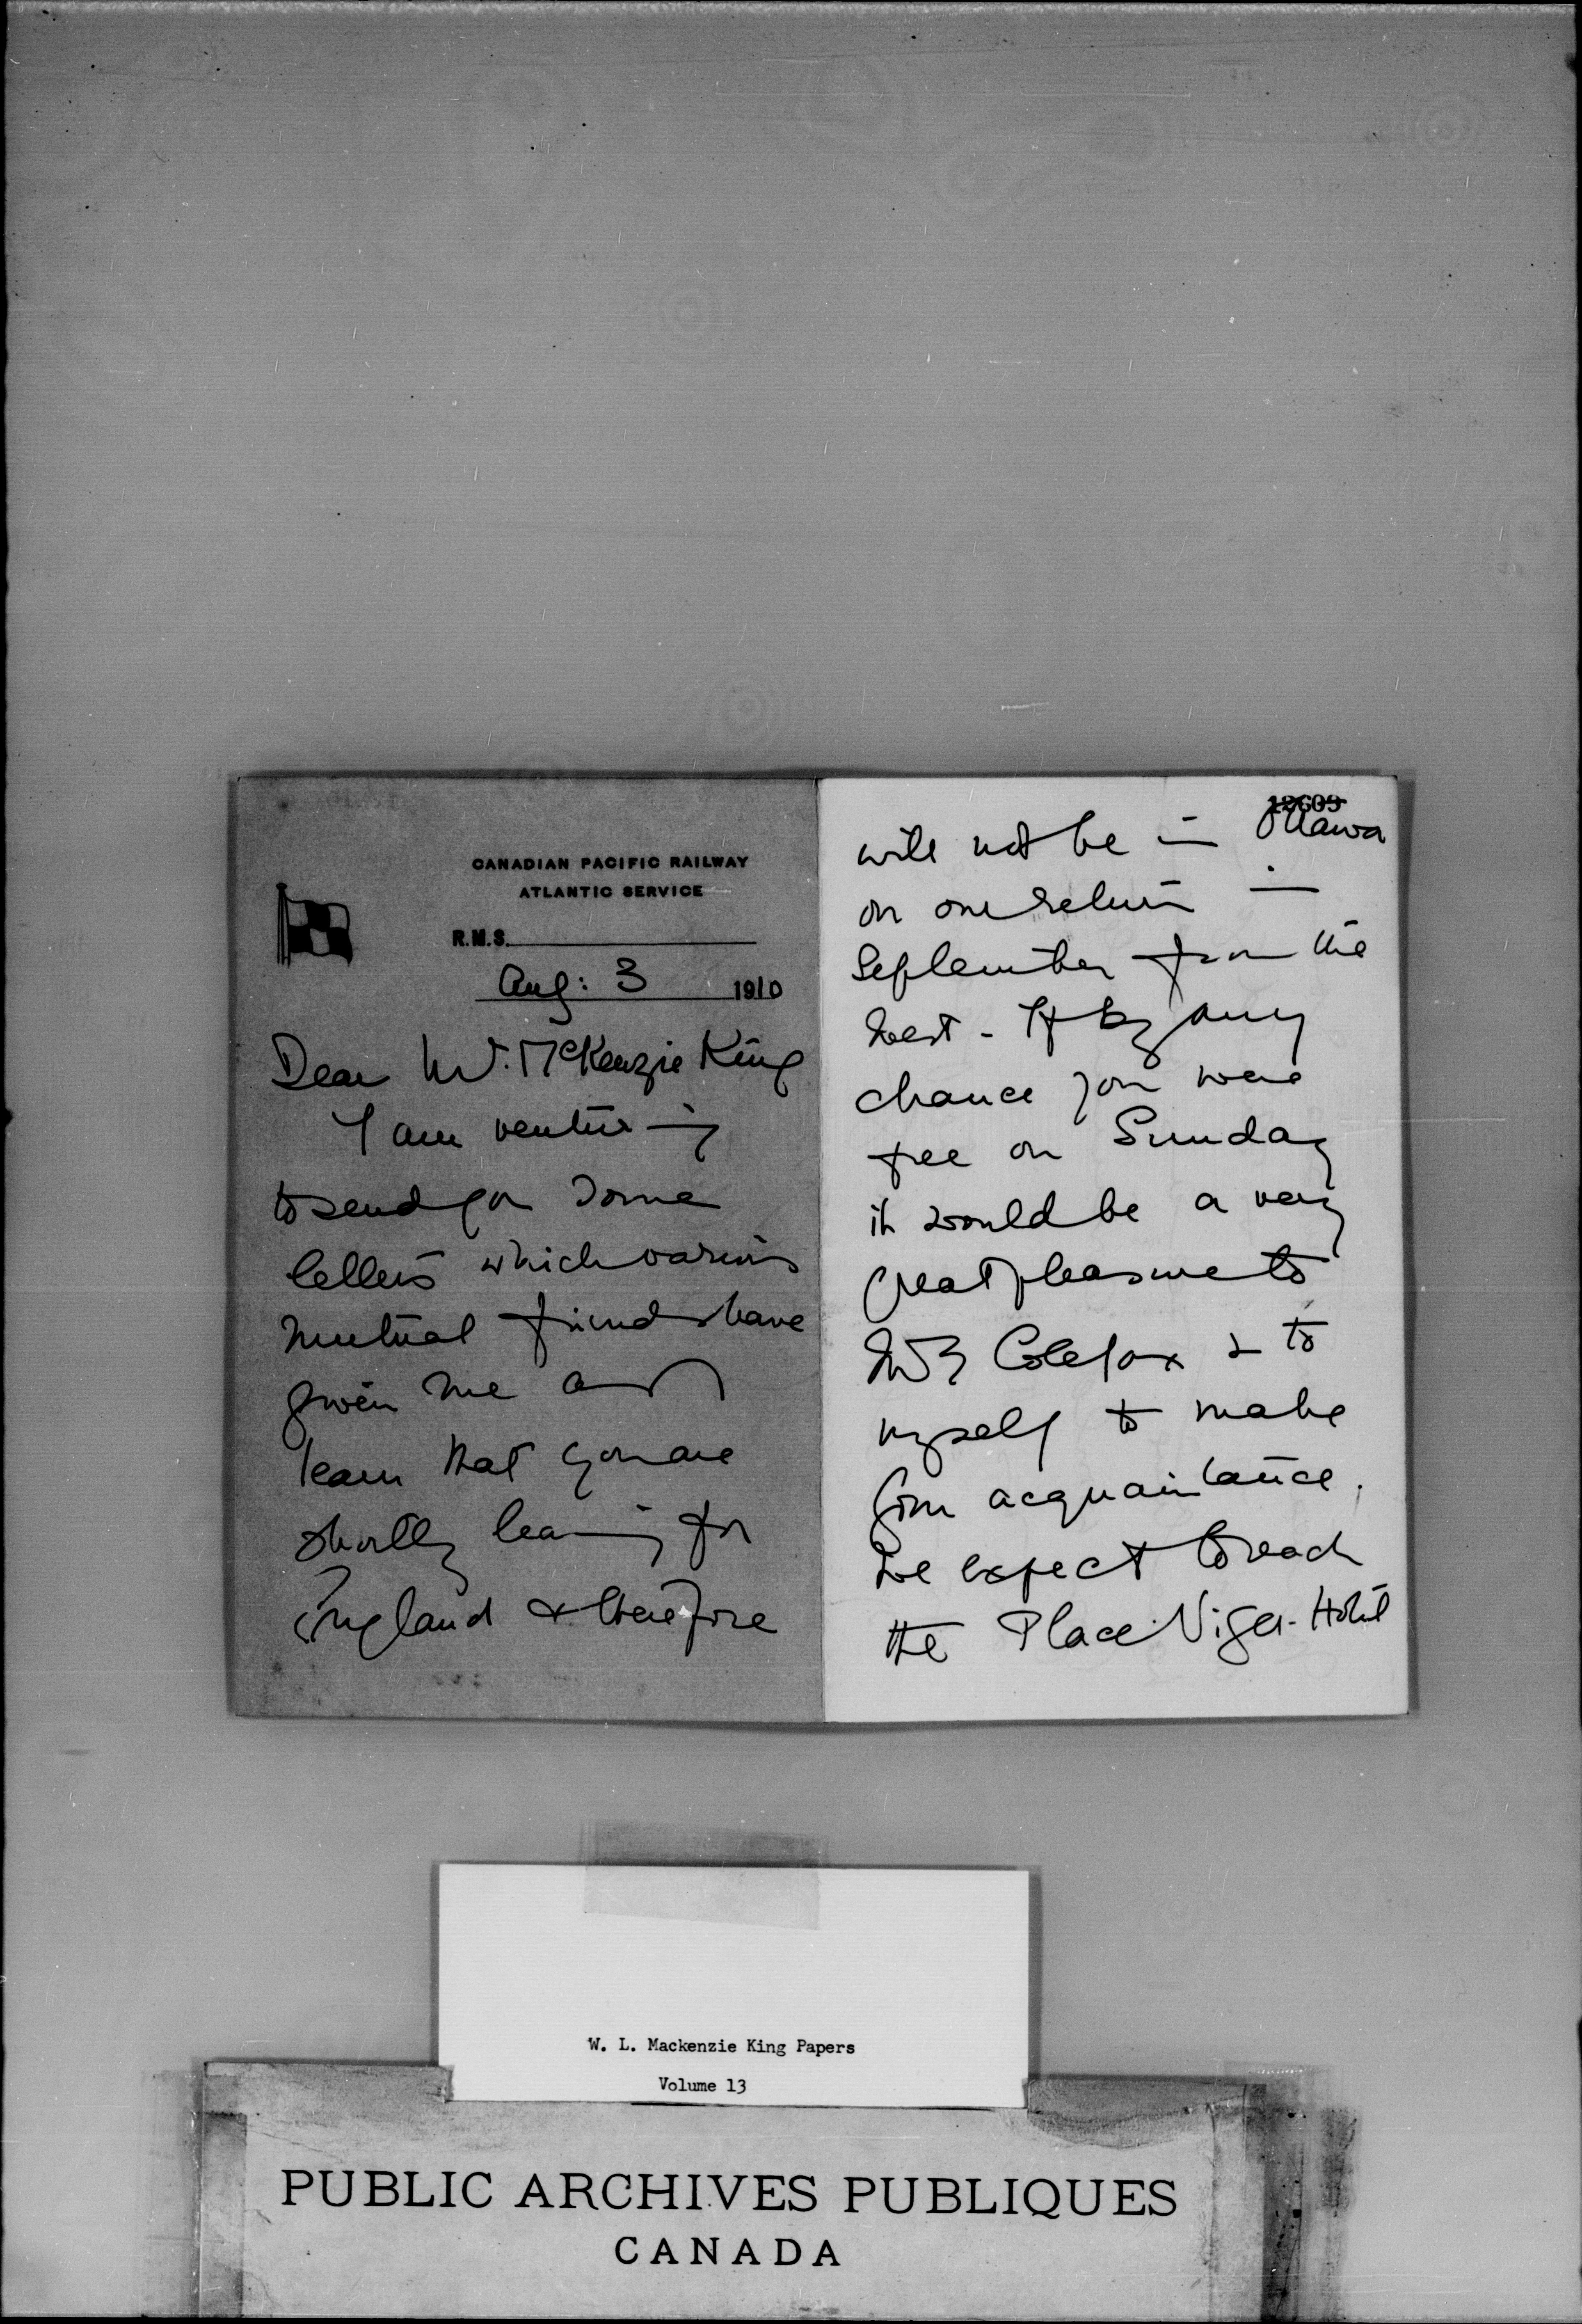 CANADIAN PACIFIC RAILWAY
ATLANTIC SERVICE
R.M.S.
Aug: 3 1910
Dear Mr. McKenzie King
I am venturing
to send you some
letters which various
mutual friends have
given me and I
learn that you are
shortly leaving for
England & therefore
12609
will not be in Ottawa
on our return in
September from the
West - If by any
chance you were
free on Sunday
it would be a very
great pleasure to
Mrs Colefax & to
myself to make
your acquaintance.
We expect to reach
the Place Viger Hotel
W. L. Mackenzie King Papers
Volume 13
PUBLIC ARCHIVES PUBLIQUES
CANADA